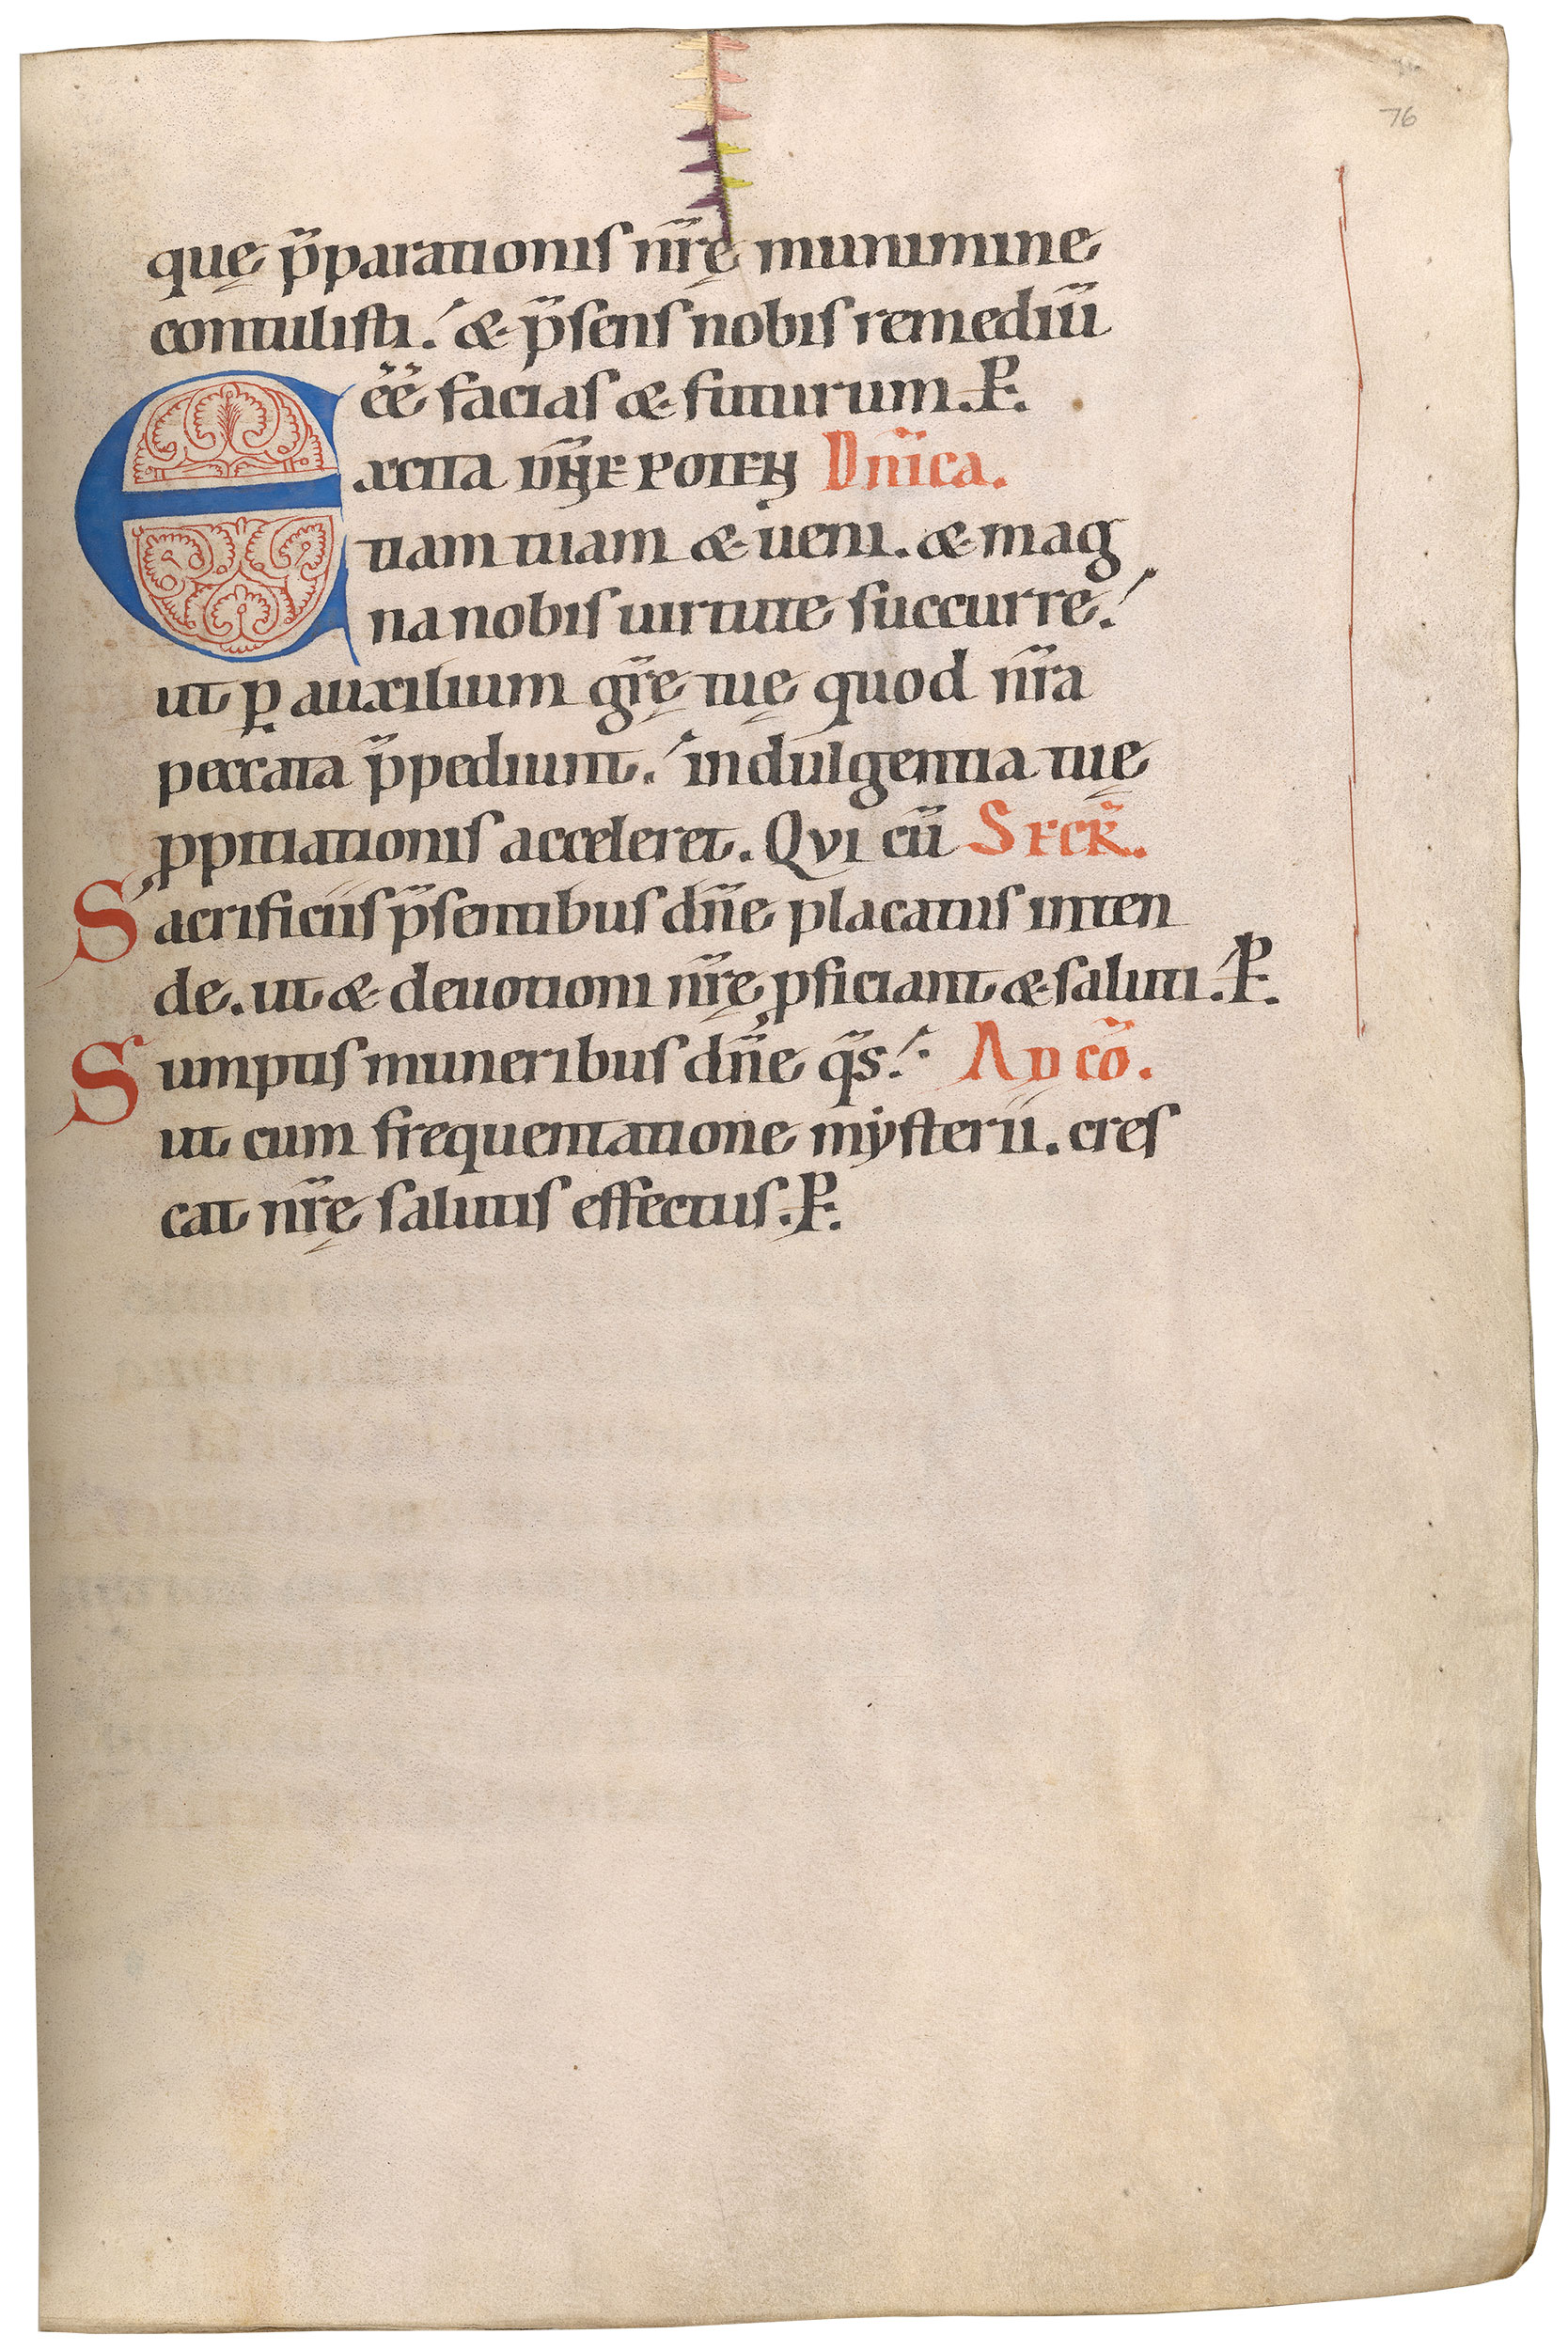 76
quę p̄parationis nr̄ę munimine
contulisti. & p̄sens nobis remediū
ēē facias & futurum. P.
Excita dn̄e poten Dn̄ica.
tiam tuam & ueni. & mag
na nobis uirtute succurre.
ut ꝑ auxilium gr̄ę tuę quod nr̄a
peccata p̄pediunt. indulgentia tuę
ꝓpitiationis acceleret. Qui cū Secr̄.
Sacrificiis p̄sentibus dn̄e placatus inten
de. ut & deuotioni nr̄ę ꝓficiant & saluti. P.
Sumptis muneribus dn̄e q̄s. Ad cō.
ut cum frequentatione mẏsterii. cres
cat nr̄ę salutis effectus. P.